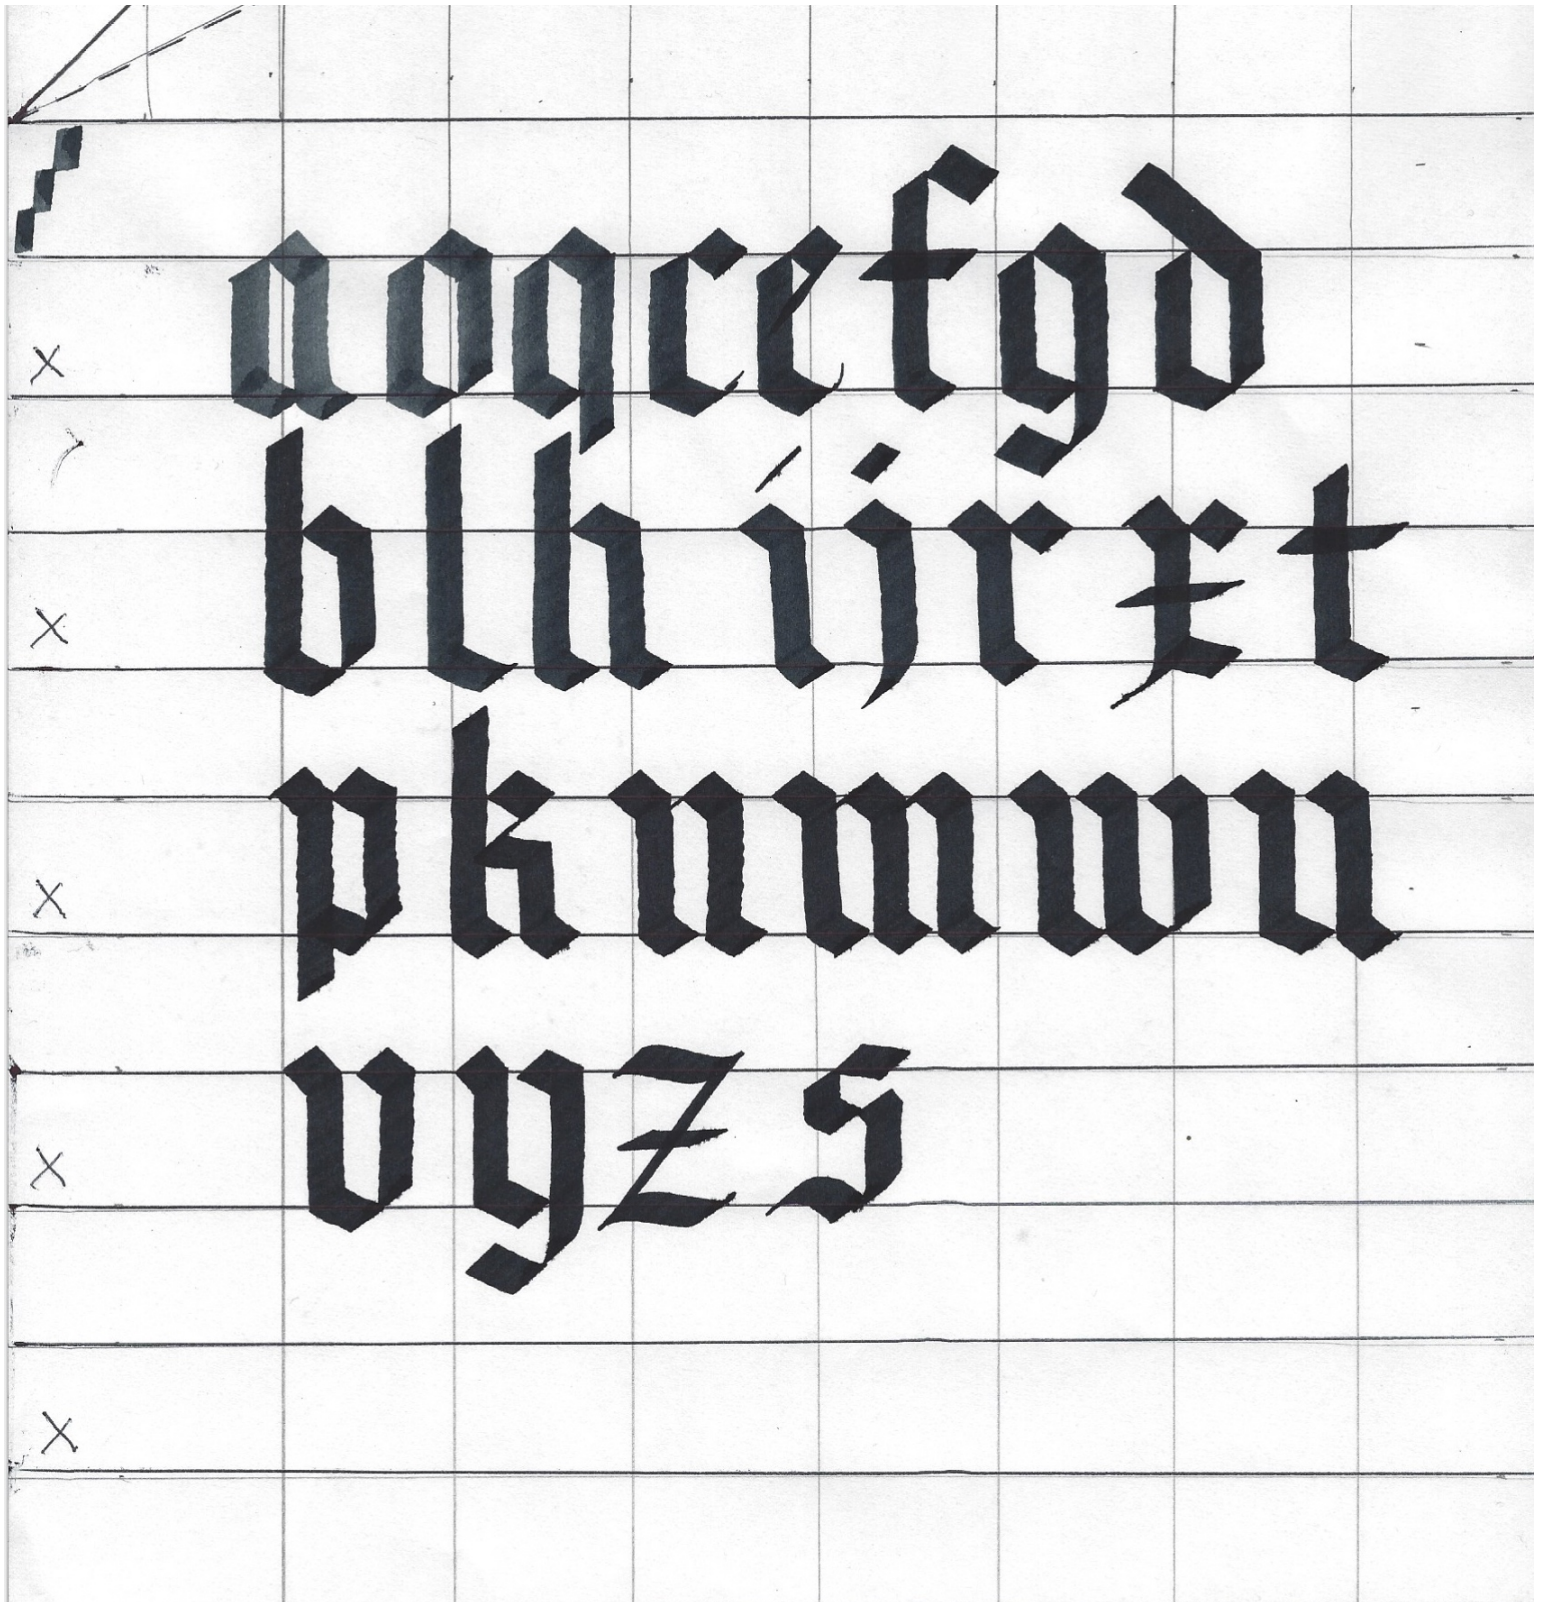 x a o q c e f g d
x b l h i j r x t
x p k n m w u
x v y z s
x